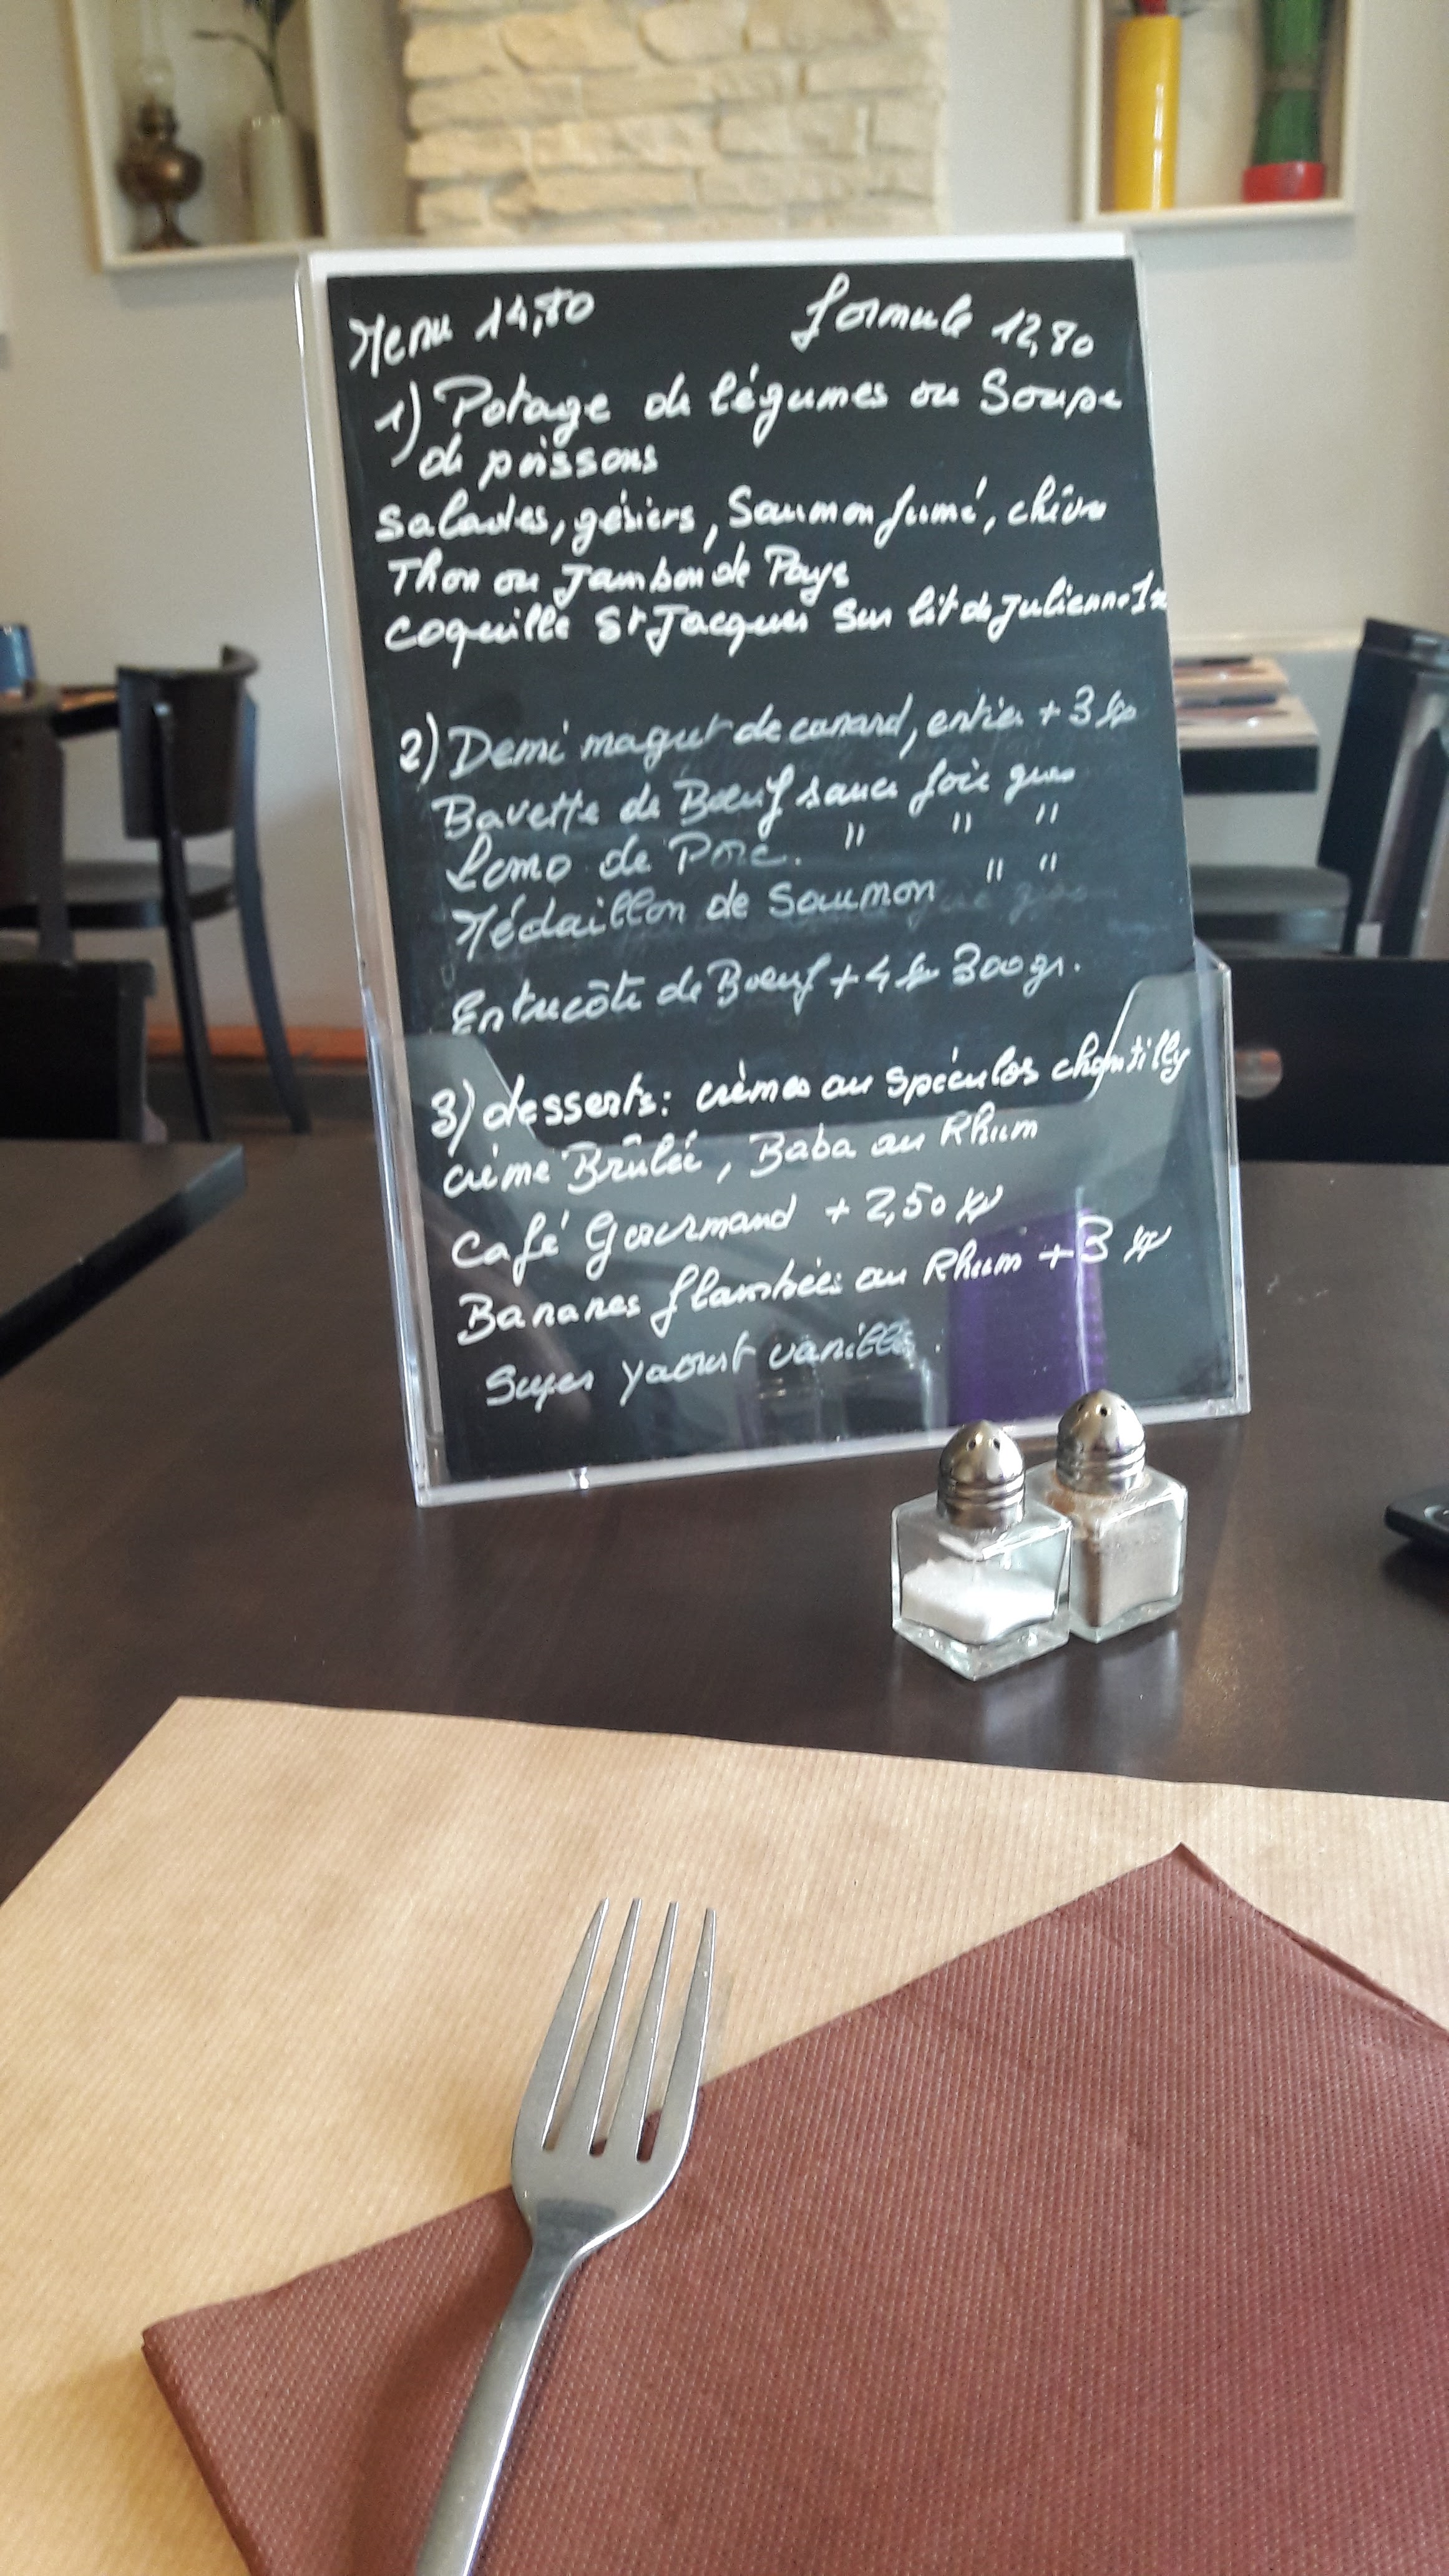 Menu 14,80 Formule 12,80
1) Potage de légumes ou Soupe
de poissons
Salades, gésiers, Saumon fumé, chèvre
Thon ou Jambon de Pays
coquille St Jacques sur lit de Julienne
2) Demi magret de canard, entier + 3
Bavette de Bœuf sauce foie gras
Lomo de Porc. " " "
Médaillon de Saumon " "
Entrecôte de Bœuf + 4 300 gr.
3) desserts: crèmes au spéculos chantilly
crème Brûlée, Baba au Rhum
Café Gourmand + 2,50
Bananes flambées au Rhum + 3
Super yaourt vanille.